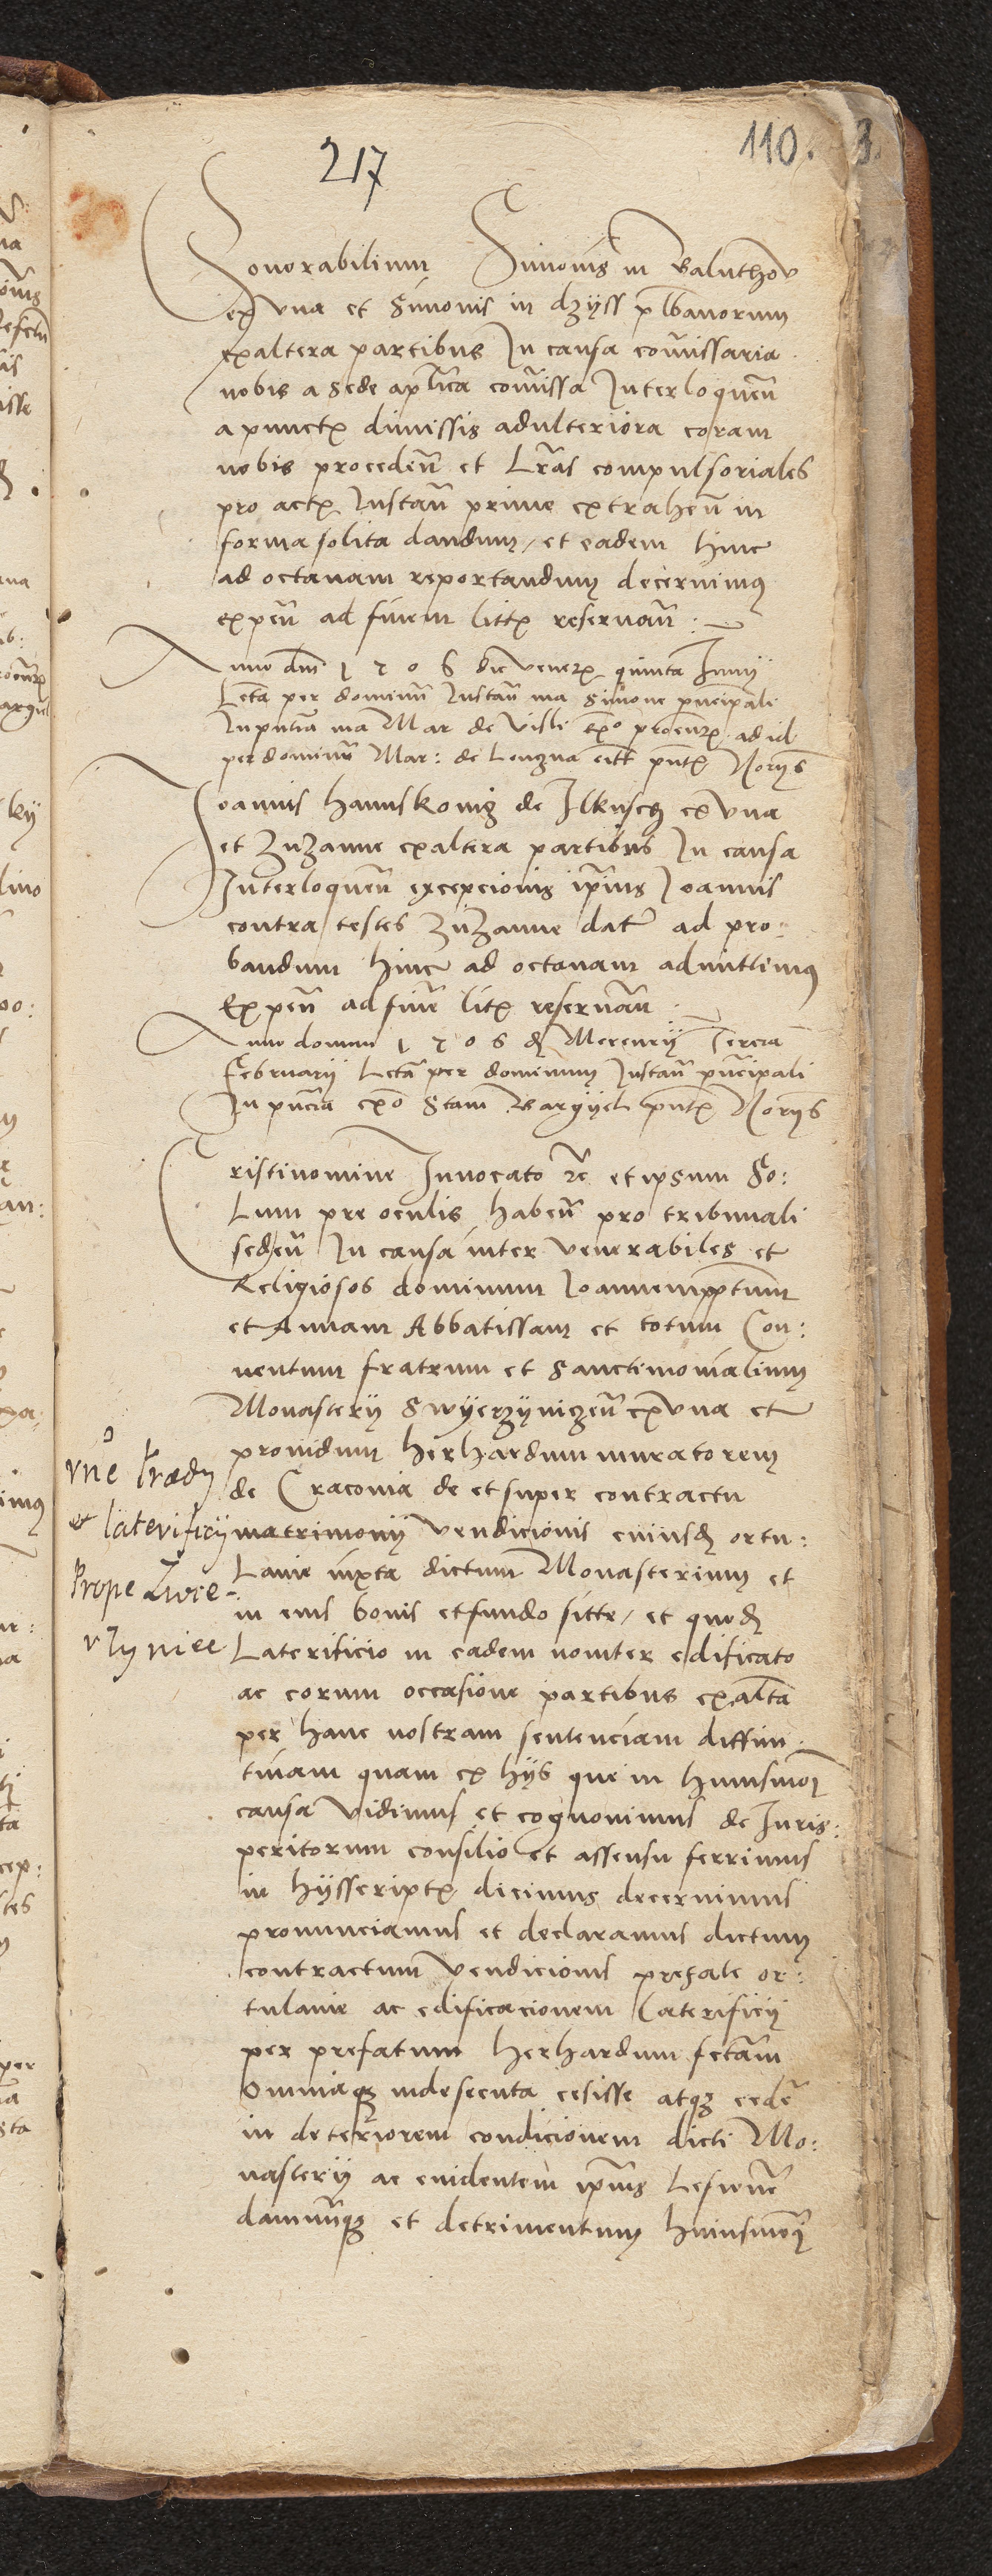 110. 3.
217
Honorabilium Simonis in Baluthow
ex vna et Simonis in dzyss plbanorum
exaltera partibus In causa comissaria
nobis a sede aplica comissa Interloquen
a punctx dimissis adulteriora coram
nobis proceden et Lras compulsoriales
pro actx Instan prime extrahen in
forma solita dandum / et eadem hinc
ad octauam reportandum decernimus
expen ad finem littx reseruan :
Anno dm 1506 die venerx quinta Junij
Lcta per dominum Instan ma Simone pncipali
In pntia ma Mar de visli exo procurx ad id
per dominum Mar : de Lengna citt pntx Norijs
Joannis hannskonig de Ilkusch ex vna
et Zuzanne exaltera partibus In causa
Interloquen excepcionis ipius Joannis
contra testes Zuzanne dat ad pro :
bandum hinc ad octauam admittimus
Expen ad fine litx reseruan
Anno domini 1506 d Mercurij Tercia
Februarij Lcta per dominum Instan pncipali
In pncia exo Stam Bargyel pntx Norijs
Cristi nomine Inuocato rc et ipsum So :
Lum pre oculis haben pro tribunali
seden In causa inter venerabiles et
Religiosos dominum Joannem pptum
et Annam Abbatissam et totum Con :
uentum fratrum et Sanctimonialium
Monasterij Swyerzynicen ex vna et
prouidum herhardum muratorem
de Cracouia de et super contractu
matrimonij vendicionis cuiusd ortu :
Lanie iuxta dictum Monasterium et
in eius bonis et fundo sitte / et quod
Laterificio in eadem nouiter edificato
ac eorum occasione partibus exalta
per hanc nostram sentenciam diffini
tiuam quam ex hijs que in huiusmoi
causa vidimus et cognouimus de Juris :
peritorum consilio et assensu ferrimus
in hijsscriptx dicimus decernimus
pronunciamus et declaramus dictum
contractum vendicionis prefate or :
tulanie ac edificacionem Laterificij
per prefatum herhardum fctam
omniaqz inde secuta cesisse atqz cede
in deteriorem condicionem dicti Mo :
nasterij ac euidentem ipius Lesione
damnuqz et detrimentum huiusmoi
rne Prædy
et laterificij
Prope Zwie-
rzyniec